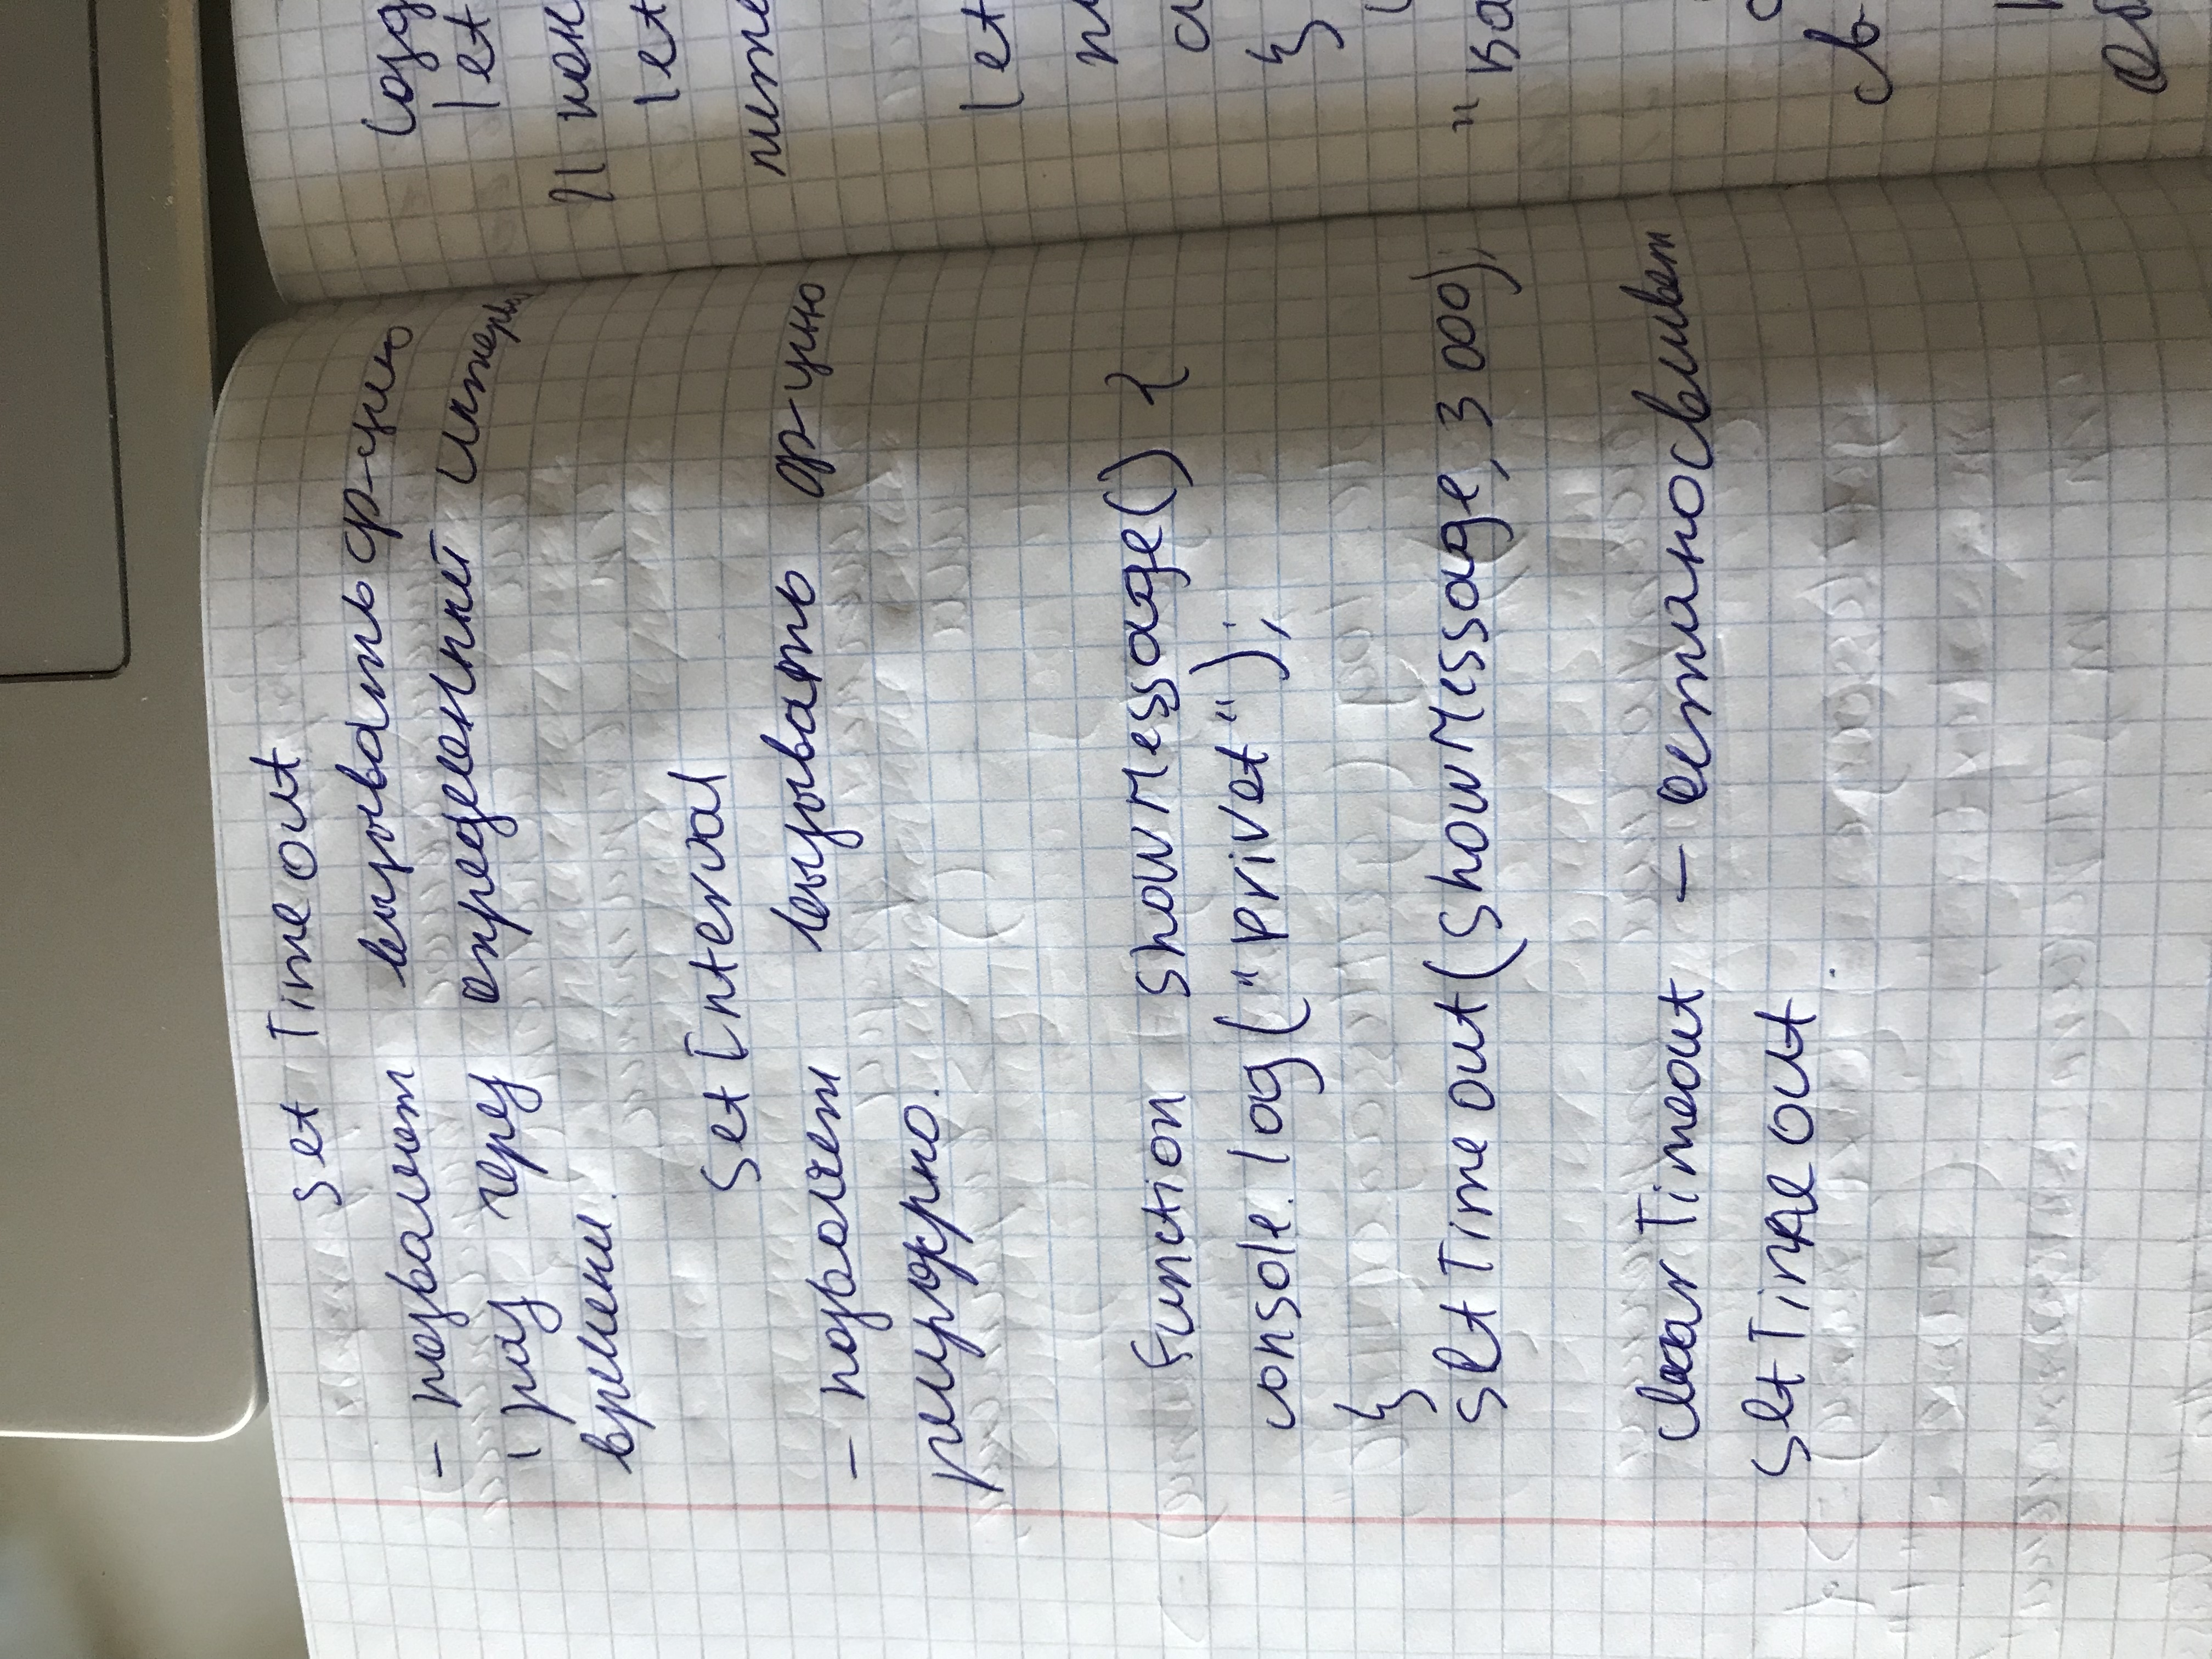 set Timeout
- позволяет вызывать ф-цию
1 раз через определенный интервал
времени.
SetInterval
- позволяет вызывать ф-цию
Function showMessage() {
console.log("privet");
}
setTimeout(showMessage, 3000);
clearTimeout -
setTimeout.
let
// кон
let
let
}
"ка
св
об